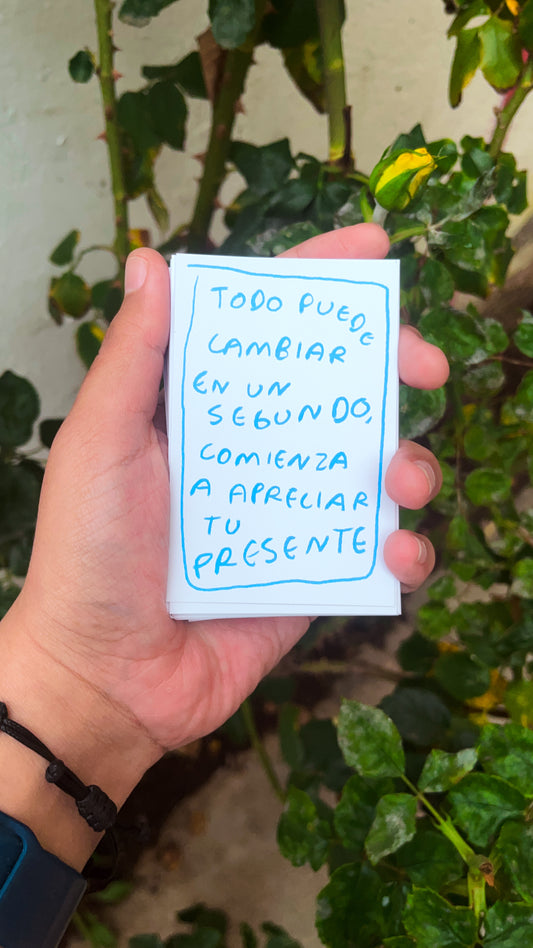 TODO PUEDE
CAMBIAR
EN UN
SEGUNDO,
COMIENZA
A APRECIAR
TU
PRESENTE